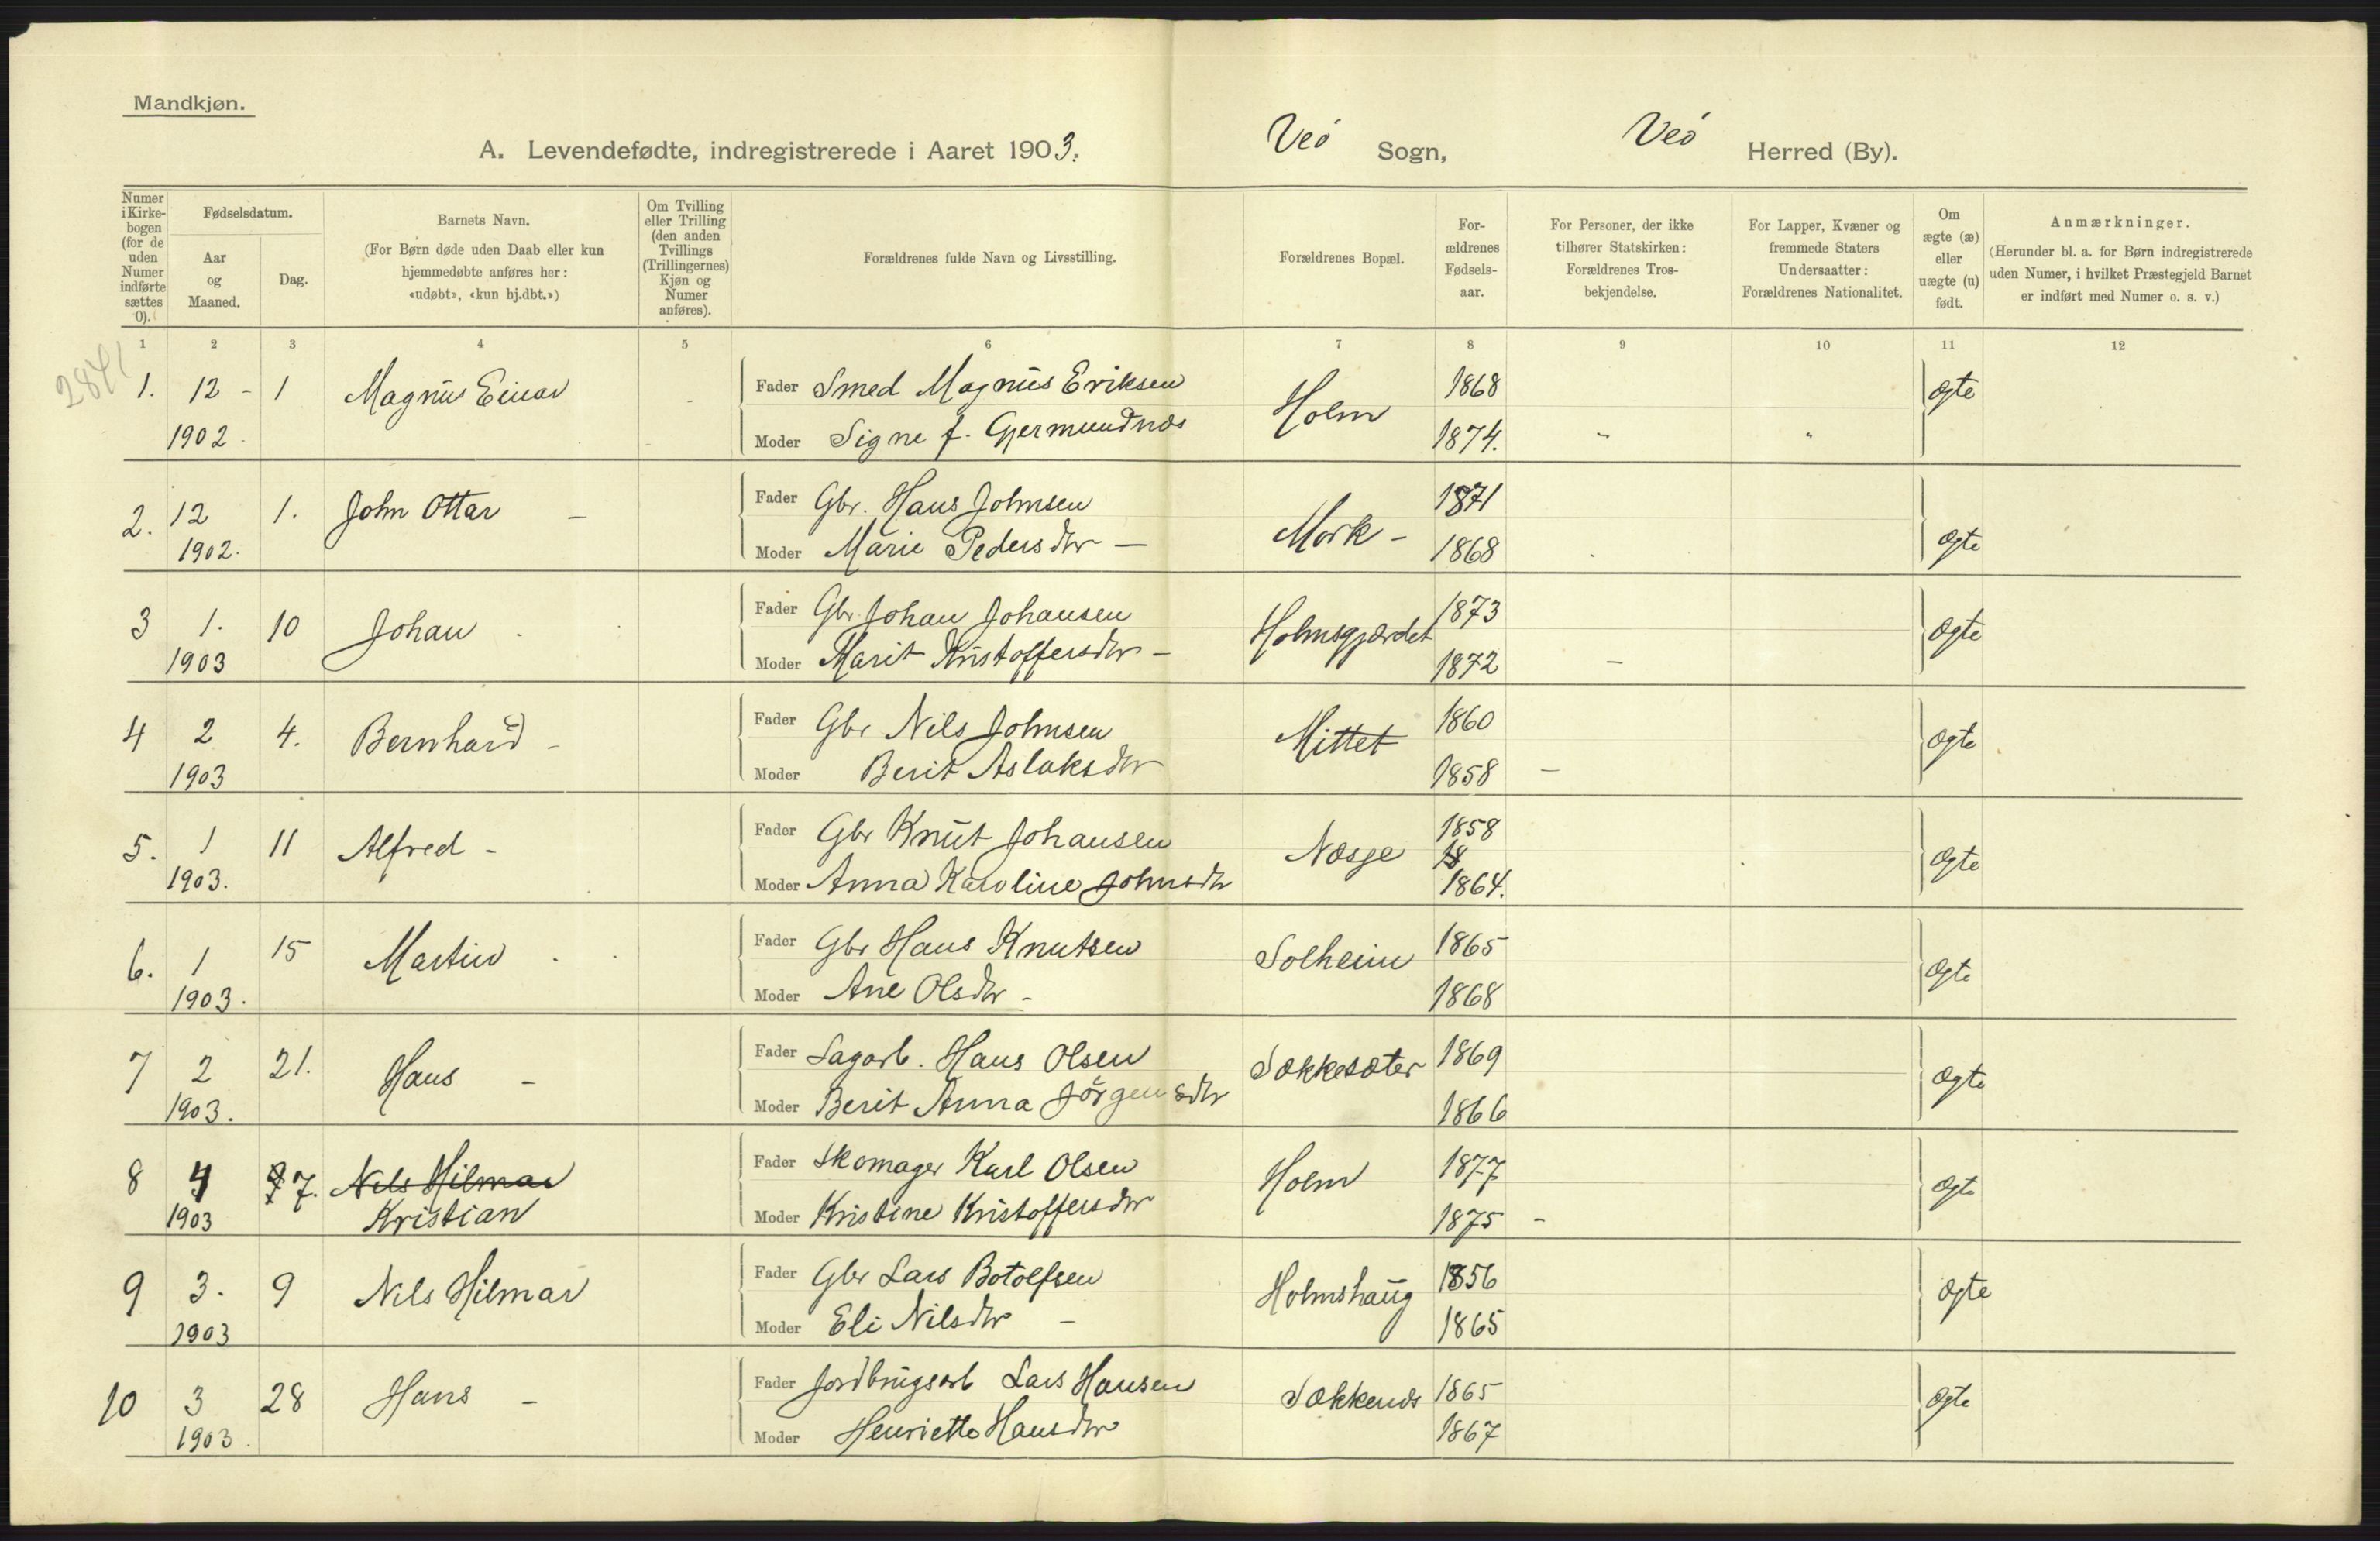 Mandkjøn.
A. Levendefødte, indregistrerede i Aaret 1903. Veó Sogn, Veó Herred (By).
Numer i Kirkebogen (for de uden Numer indførte sættes 0).
Fødselsdatum.
Aar og Maaned.
Dag.
Barnets Navn.
(For Børn døde uden Daab eller kun
hjemmedøbte anføres her:
«udøbt», «kun hj.dbt.»)
Om Tvilling
eller Trilling
(den anden
Tvillings
(Trillingernes)
Kjøn og
Numer
anføres).
Forældrenes fulde Navn og Livsstilling.
Forældrenes Bopæl.
For-
ældrenes
Fødsels-
aar.
For Personer, der ikke
tilhører Statskirken:
Forældrenes Tros-
bekjendelse.
For Lapper, Kvæner og
fremmede Staters
Undersaatter:
Forældrenes Nationalitet.
Om
ægte (æ)
eller
uægte (u)
født.
Anmærkninger.
(Herunder bl. a. for Børn indregistrerede
uden Numer, i hvilket Præstegjeld Barnet
er indført med Numer o. s. v.)
1 2 3 4 5 6 7 8 9 10 11 12
2841
1. 12 - 1 Magnus Einar - Fader Smed Magnus Eriksen Holm 1868 ægte
1902. Moder Signe f. Gjermundnæs 1874. - "
2. 12 1. John Ottar - Fader Gbr. Hans Johnsen Mork - 1871 ægte
1902. Moder Marie Pedersdtr - 1868
3 1. 10 Johan Fader Gbr. Johan Johansen Holmsgjærdet 1873 ægte
1903 Moder Marit Kristoffersdtr - 1872 -
4 2 4. Bernhard - Fader Gbr Nils Johnsen Mittet 1860 ægte
1903 Moder Berit Aslaksdtr 1858 -
5. 1 11 Alfred - Fader Gbr Knut Johansen Næsje 1858 ægte
18
1903. Moder Anna Karoline Johnsdtr 1864.
6. 1 15 Martin Fader Gbr Hans Knutsen Solheim 1865 ægte
1903. Moder Ane Olsdtr - 1868
7 2 21. Hans - Fader Sagarb. Hans Olsen Sækkesæter 1869 ægte
1903. Moder Berit Anna Jörgensdtr 1866
8 4 7. Nils Hilmar Fader Skomager Karl Olsen Holm 1877 ægte
1903 Kristian Moder Kristine Kristoffersdtr 1875 -
9 3. 9 Nils Hilmar Fader Gbr Lars Botolfsen Holmshaug 1856 ægte
1903 Moder Eli Nilsdtr - 1865
10 3 28 Hans - Fader Jordbrugsarb Lars Hansen Sækkenæs 1865 ægte
1903. Moder Henriette Hansdtr 1867